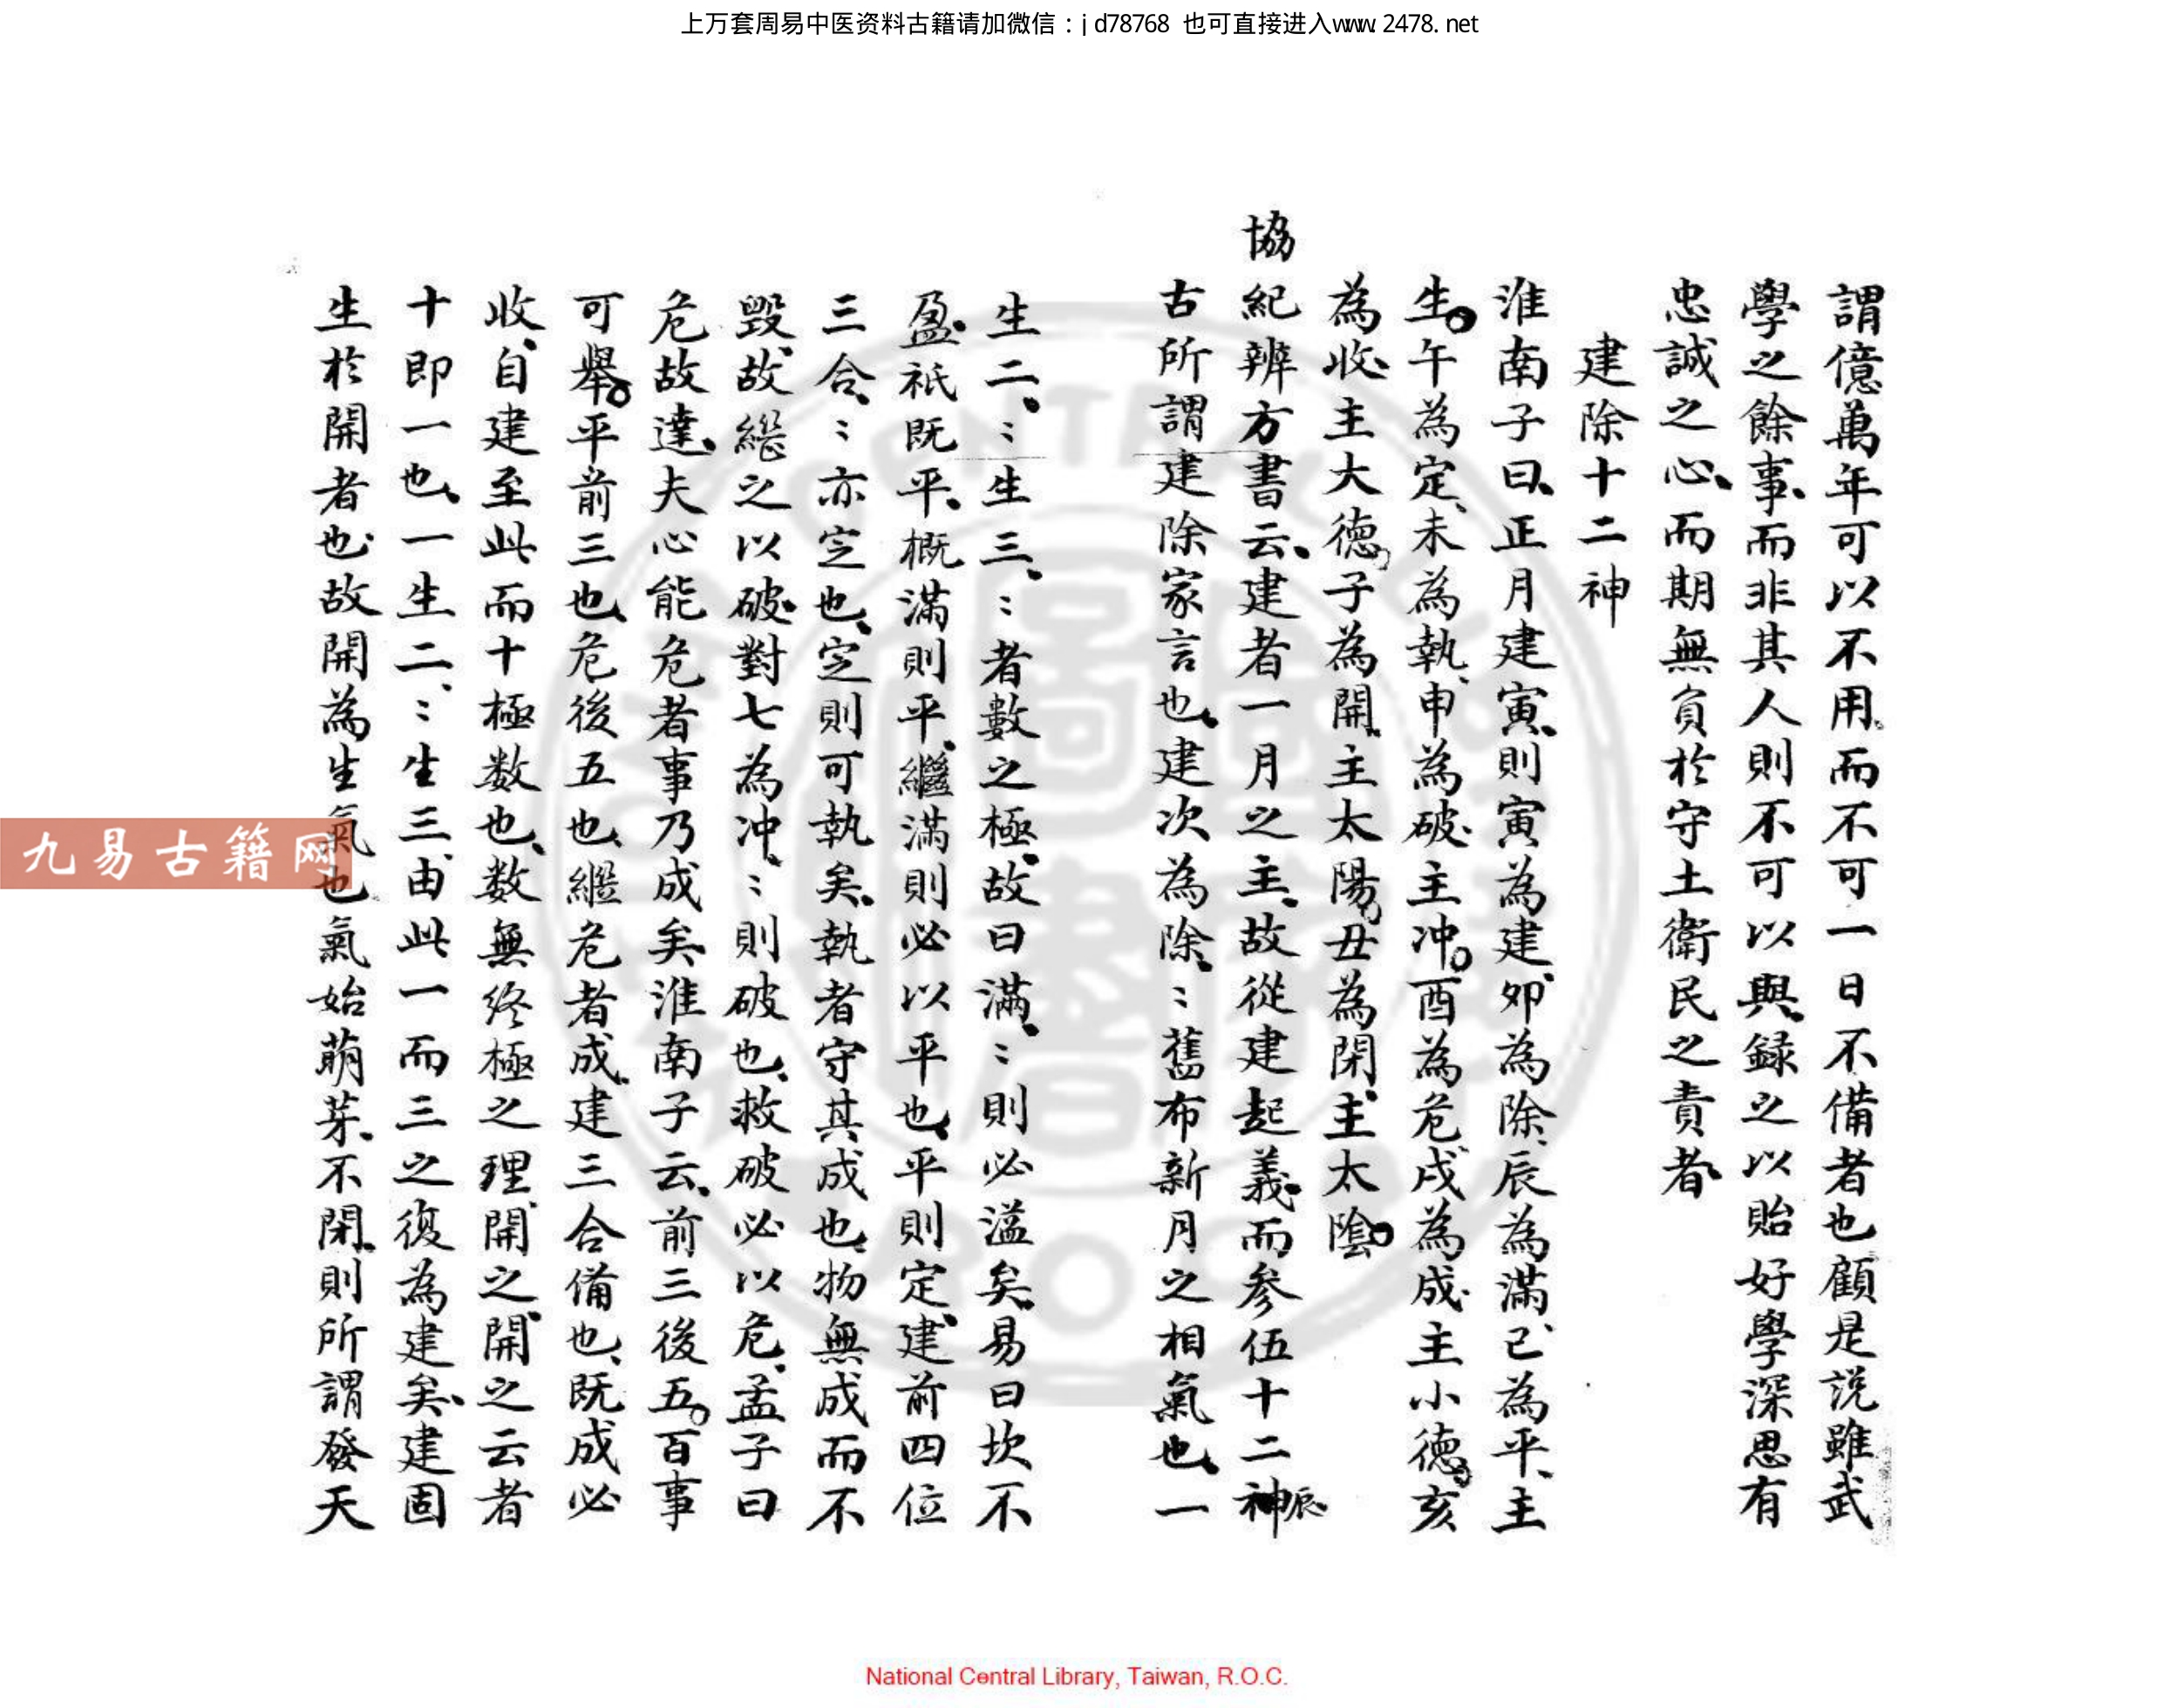 上万套周易中医资料古籍请加微信：jd78768 也可直接进入www.2478.net
謂億萬年可以不用。而不可一日不備者也顧是説雖武
學之餘事、而非其人則不可以與、録之以貽好學深思有
忠誠之心、而期無負於守土衛民之責者、
建除十二神
淮南子曰、正月建寅、則寅為建、卯為除、辰為滿、已為平、主
生。午為定、未為執、申為破、主冲。酉為危、戌為成、主小德。亥
為收、主大德。子為開、主太陽。丑為閉、主太陰。
協紀辨方書云、建者一月之主、故從建起義、而参伍十二神辰、
古所謂建除家言也、建次為除、：舊布新月之相氣也、一
生二、：生三、：者數之極、故曰滿、：則必溢矣、易曰坎不
盈、祇既平、概滿則平、繼滿則必以平也、平則定、建前四位
三合、：亦定也、定則可執矣、執者守其成也、物無成而不
毀、故繼之以破、對七為冲、：則破也、救破必以危、孟子曰
危故達、夫心能危者事乃成矣、淮南子云、前三後五。百事
可舉。平前三也、危後五也、繼危者成、建三合備也、既成必
收、自建至此而十極数也、数無終極之理、開之、開之云者
十即一也、一生二、：生三、由此一而三之復為建矣、建固
生於開者也、故開為生氣也。氣始萌芽、不閉、則所謂發天
九易古籍网
National Central Library, Taiwan, R.O.C.